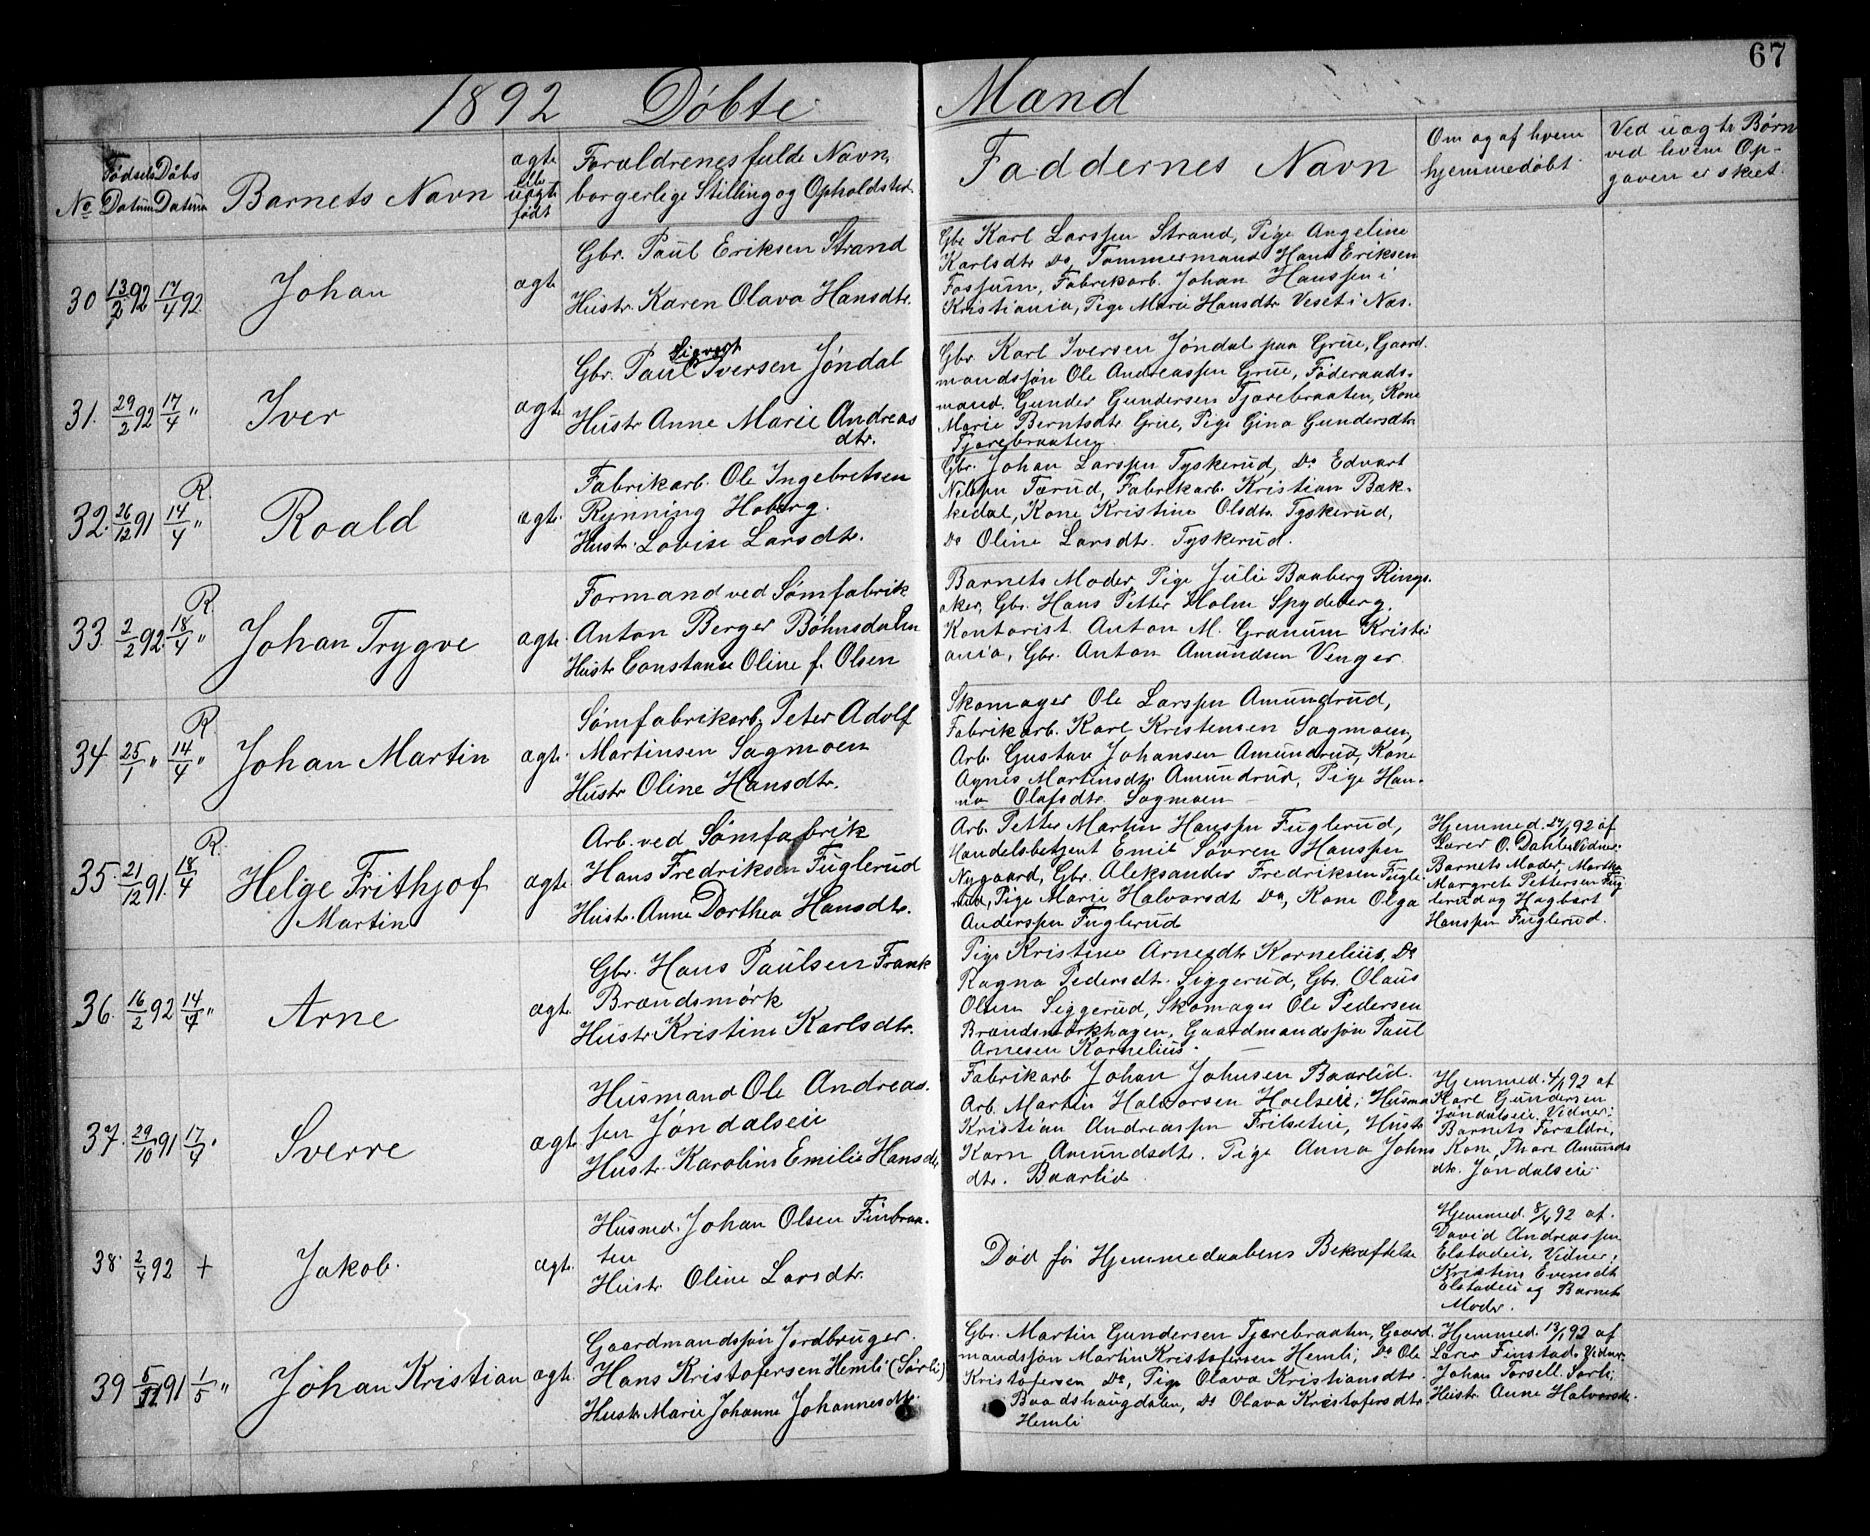 67
1892 Döbte Mænd
No
Födsels Datum
Döbs Datum
Barnets Navn
ægte elle uægte födt
Forældrenes fulde Navn,
borgerlige Stilling og Opholdsted
Faddernes Navn
Om og af hvem
hjemmedöbt
Ved uægte Børn
ved hvem Op-
gaven er skeet.
30 13/2 92 17/4 92. Johan ægte
Gbr. Paul Eriksen Strand
Hustr. Karen Olava Hansdtr.
Gbr Karl Larssen Strand, Pige Angeline
Karlsdtr Do, Tømmermand Hans Eriksen
Fossum, Fabrikarb. Johan Hanssen i
Kristiania, Pige Marie Hansdtr Veset i Næs.
31. 29/2 92 17/4 " Iver ægte
Sigvart
Gbr. Paul Iversen Jöndal
Hustr Anne Marie Andreas
dtr.
Gbr. Karl Iversen Jöndal paa Grüe, Gaard
mandssön Ole Andreassen Grüe, Föderaads-
mand. Gunder Gundersen Tjærebraaten, Kone
Marie Berntsdtr Grüe, Pige Gina Gundersdtr
Tjærebraaten.
32. 26/12 91 R. 14/4 " Roald ægte.
Fabrikarb. Ole Ingebretsen
Rynning Hoberg.
Hustr. Lovise Larsdtr.
Gbr. Johan Larssen Tyskerud, Do Edvart
Nilssen Tærud, Fabrikarb. Kristian Bæk-
kedal, Kone Kristine Olsdtr. Tyskerud,
Do Oline Larsdtr. Tyskerud.
33. 2/2 92. R. 18/4 " Johan Trygve ægte.
Formand ved Sömfabrik
Anton Berger Böhnsdalen
Hustr Constanse Oline f. Olsen
Barnets Moder, Pige Julie Baaberg Rings-
aker, Gbr. Hans Petter Holm Spydeberg.
Kontorist Anton M. Granum Kristi-
ania, Gbr. Anton Amundsen Venger
34 25/1 " R. 14/4 " Johan Martin ægte.
Sömfabrikarb. Peter Adolf
Martinsen Sagmoen
Hustr Oline Hansdtr.
Skomager Ole Larssen Amundrud,
Fabrikarb. Karl Kristensen Sagmoen,
Arb. Gustav Johansen Amundrud, Kone
Agnis Martinsdtr Amundrud, Pige Han-
na Olafsdtr. Sagmoen
35. 21/12 91. R. 18/4 Helge Frithjof
Martin
ægte
Arb. ved Sömfabrik
Hans Fredriksen Fuglerud
Hustr. Anne Dorthea Hansdtr.
Arb. Petter Martin Hanssen Fuglerud,
Handelsbetjent Emil Sövren Hanssen
Nygaard, Gbr. Aleksander Fredriksen Fugle-
rud, Pige Marie Halvorsdt Do, Kone Olga
Anderssen Fuglerud
Hjemmed. 24/1 92 af
Lærer O. Dahle, Vidner:
Barnets Moder, Marthe
Margrete Pettersen Fug-
lerud og Hagbart
Hanssen Fuglerud.
36. 16/2 92 14/4 " Arne ægte.
Gbr. Hans Paulsen Frank
Brændsmörk
Hustr Kristine Karlsdtr.
Pige Kristine Arnesdtr Kornelius, Do
Ragna Pedersdt. Siggerud, Gbr. Olaus
Olsen Siggerud, Skomager Ole Pedersen
Brændsmörkhagen, Gaardmandssön Paul
Arnesen Kornelius.
37. 29/10 91 17/4 " Sverre ægte
Husmand Ole Andreas-
sen Jöndalseie
Hustr. Karoline Emilie Hansdtr
Fabrikarb Johan Johnsen Baarlid.
Arb. Martin Halvorsen Hvelseie, Husma
Kristian Andreassen Frilseteie, Hustr
Karn Amundsdtr. Pige Anna Johns
dtr. Baarlid
Hjemmed. 4/1 92 af
Karl Gundersen
Jöndalseie, Vidner:
Barnets Foraldre,
Kone, Thore Amunds
dtr. Jöndalseie
38. 2/4 92 + Jakob. ægte.
Husmd. Johan Olsen Finbraa-
ten
Hustr Oline Larsdtr.
Död för Hjemmedaabens Bekræftelse
Hjemmed. 8/4 92 af.
David Andreassen
Elstadeie, Vidner:
Kristine Evensdt
Elstadeie og Barnets
Moder.
39 5/11 91 1/5 " Johan Kristian ægte.
Gaardmandssön Jordbruger.
Hans Kristofersen Hemli (Sörli)
Hustr Marie Johanne Johannesdtr
Gbr. Martin Gundersen Tjærebraaten, Gaard-
mandssön Martin Kristofersen Hemli, Do Ole
Kristofersen Do, Pige Olava Kristiansdtr.
Baadshaugdalen, Do Olava Kristofersdtr
Hemli
Hjemmed. 13/1 92 af
Lærer Finstad. Vidner
Johan Torsell. Sörli,
Hustr. Anne Halvorsdt.